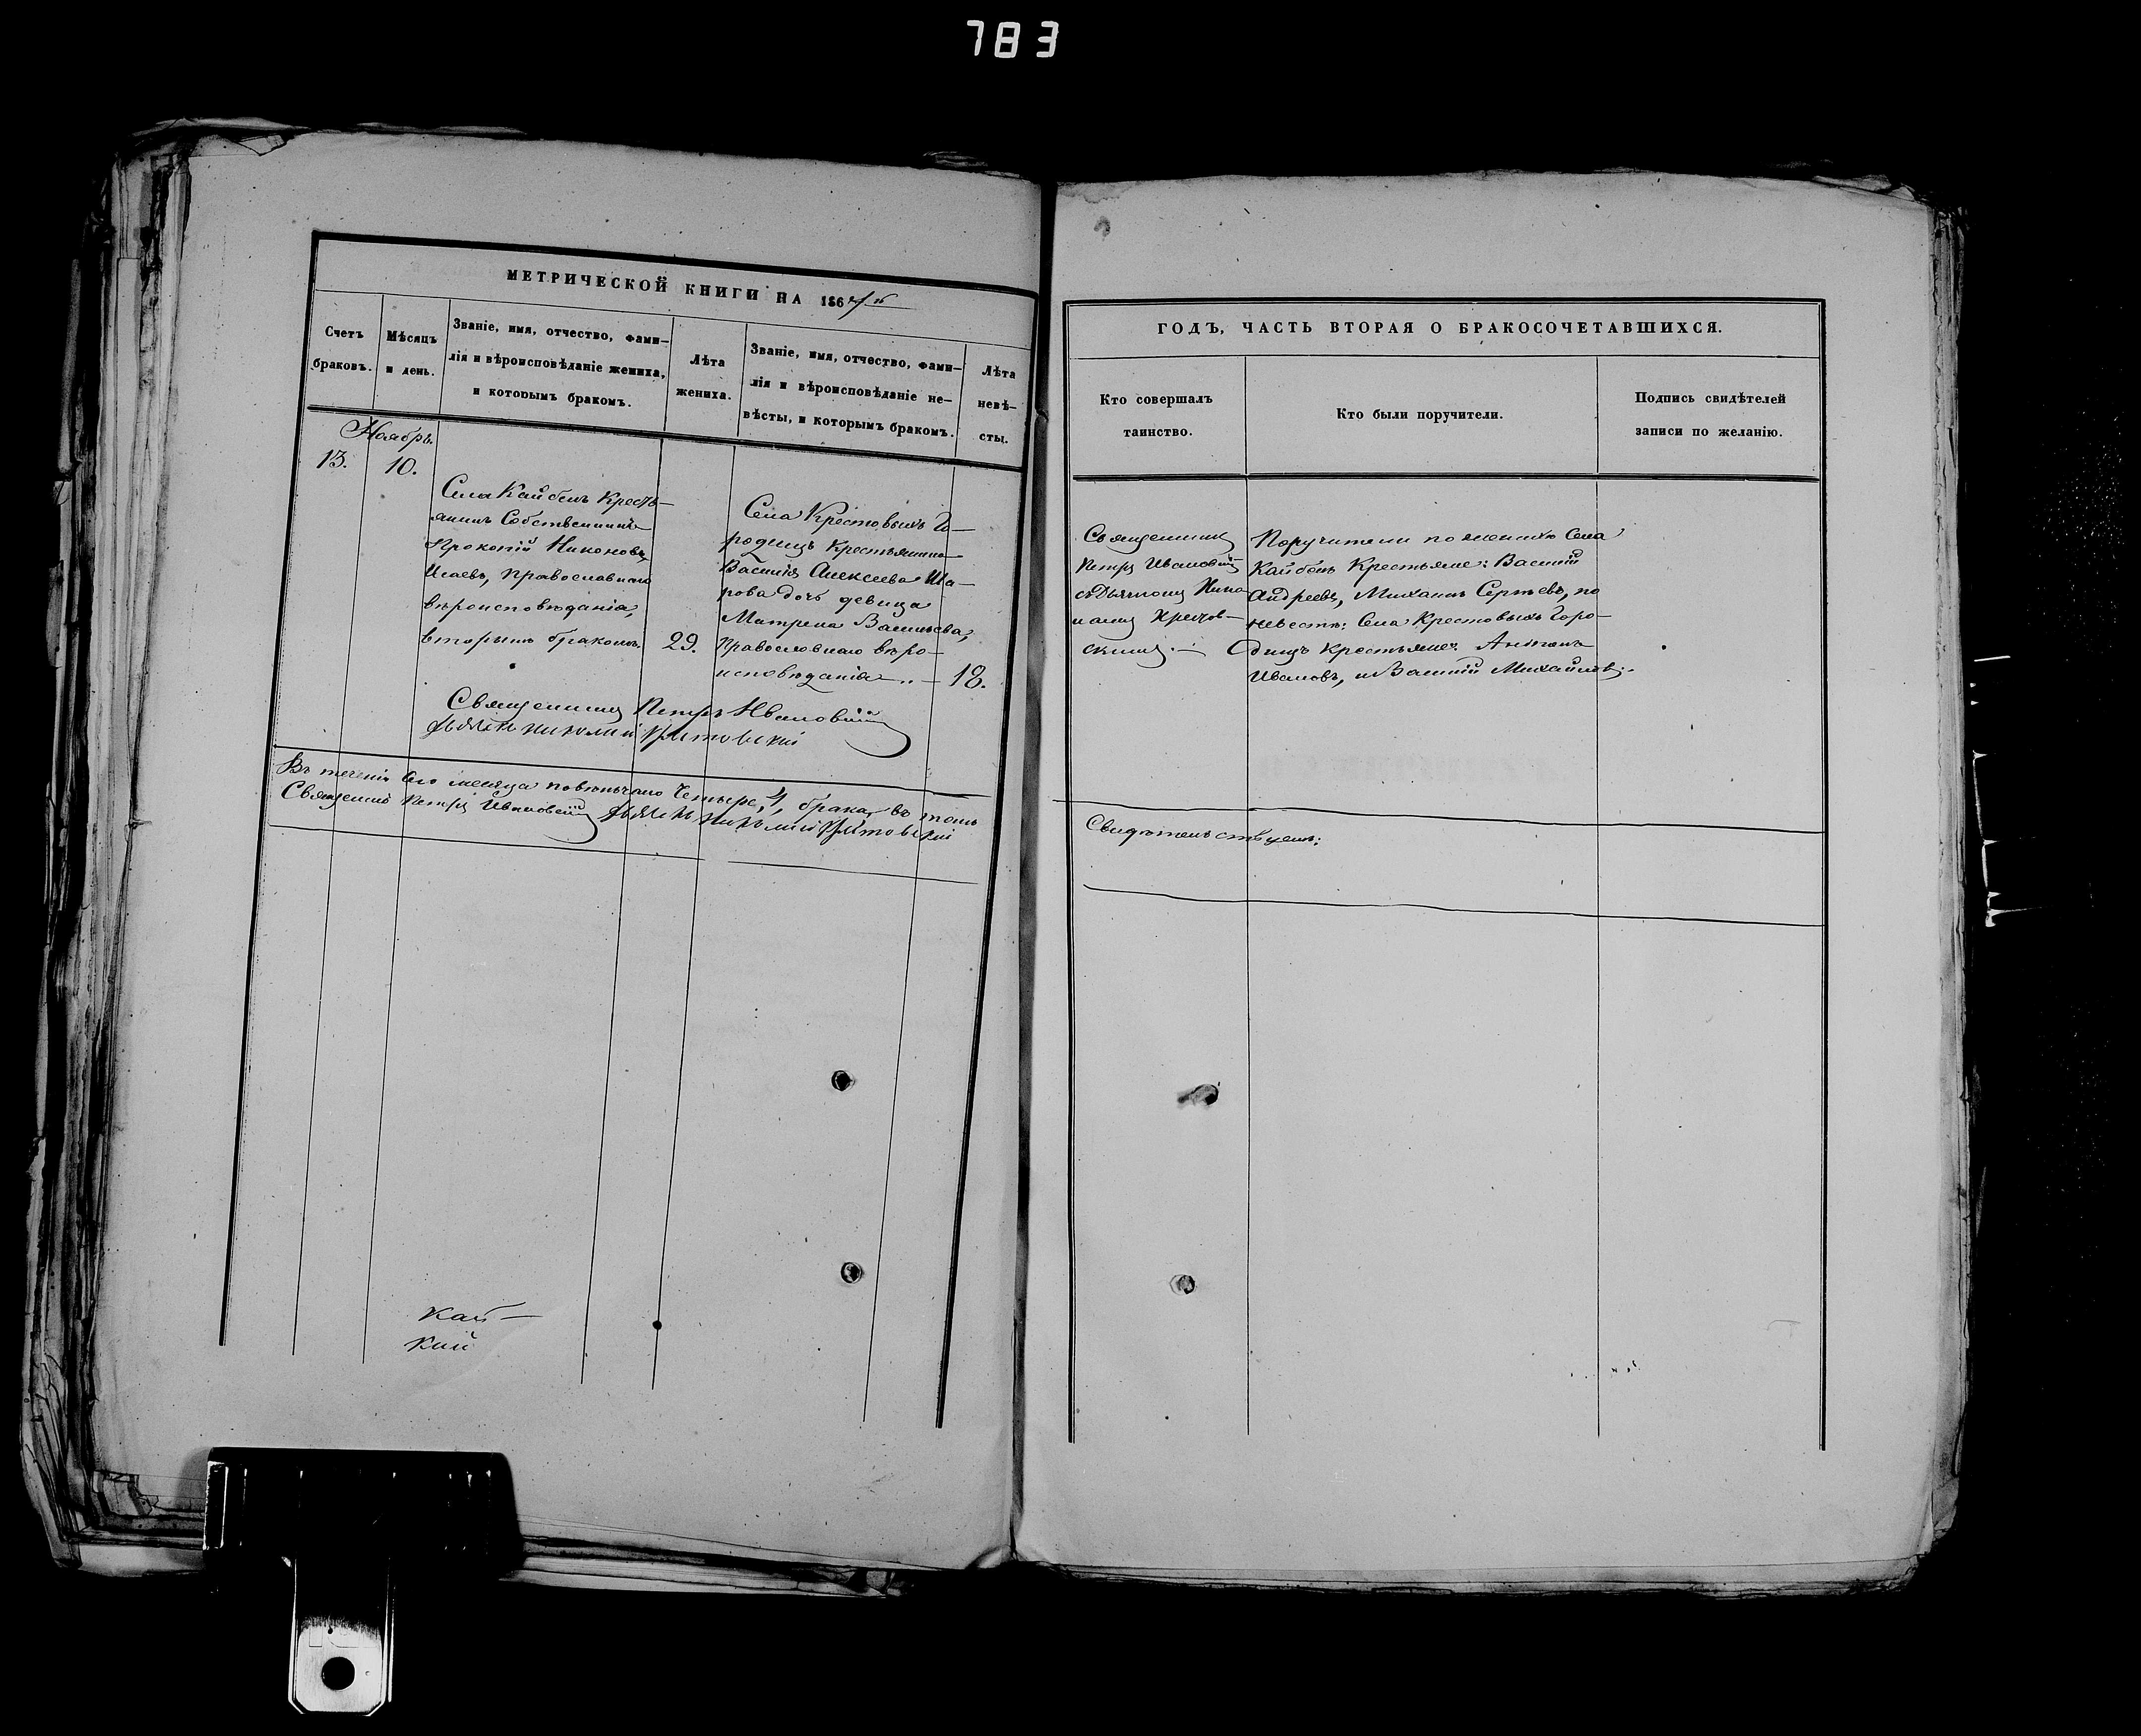 783
МЕТРИЧЕСКОЙ КНИГИ НА 186
Счетъ браковъ.
Мѣсяцъ и день.
Званіе, имя, отчество, фами-
лія и вѣроисповѣданіе жениха,
и которымъ бракомъ.
Лѣта жениха.
Званіе, имя, отчество, фами-
лія и вѣроисповѣданіе не-
вѣсты, и которымъ бракомъ.
Лѣта невѣ-
сты.
Ноябрь.
13. 10.
Села Кайбелъ Кресть-
янинъ Собственникъ
Прокопій Никоновъ
Исаевъ, православнаго
вѣроисповѣданія,
вторымъ бракомъ. 29.
Села Крестовыхъ Го-
родищъ Крестьянина
Василія Алексеева Ша-
рова дочь девица
Матрена Васильева,
православнаго вѣро-
исповѣданія 18.
Священникъ Петръ Ивановскій
Дьячекъ Николай
Въ теченіи сего месяца повѣнчано Четыре, 4, брака, въ томъ
Священникъ Петръ Ивановскій Дьячекъ Николай
Кай-
Кай
ГОДЪ, ЧАСТЬ ВТОРАЯ О БРАКОСОЧЕТАВШИХСЯ.
Кто совершалъ
таинство.
Кто были поручители.
Подпись свидѣтелей
записи по желанію.
Священникъ
Петръ Ивановскій
съ Дьячкомъ Нико-
лаемъ
скимъ.
Поручители по женихѣ Села
Кайбелъ Крестьяне: Василій
Андреевъ, Михаилъ Сергѣевъ, по
невестѣ: Села Крестовыхъ Горо-
дищъ Крестьяне: Антонъ
Ивановъ, и Василій Михайловъ.
Свидѣтельствуемъ: